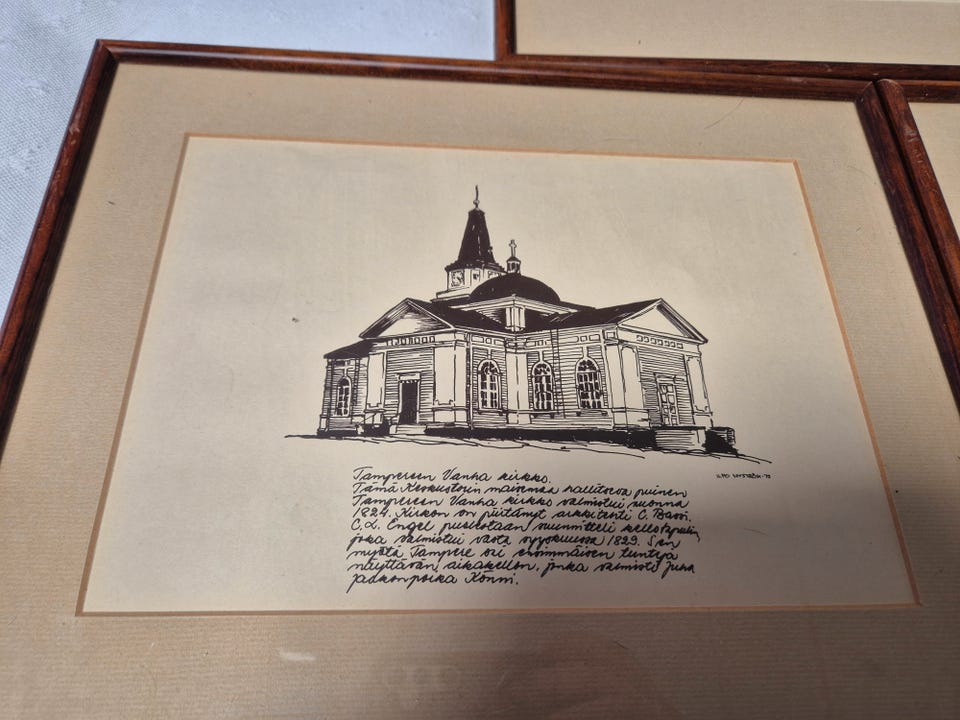 Tampereen Vanha kirkko.
Tämä Keskustorin maisemaa hallitseva puinen
Tampereen Vanha kirkko valmistui vuonna
1824. Kirkon on piirtänyt arkkitehti C. Bassi.
C.L. Engel puolestaan suunnitteli kellotapulin,
joka valmistui vasta syyskuussa 1829. Sen
myötä Tampere sai ensimmäisen tunteja
näyttävän aikakellon, jonka valmisti Juha
Jaakonpoika Könni.